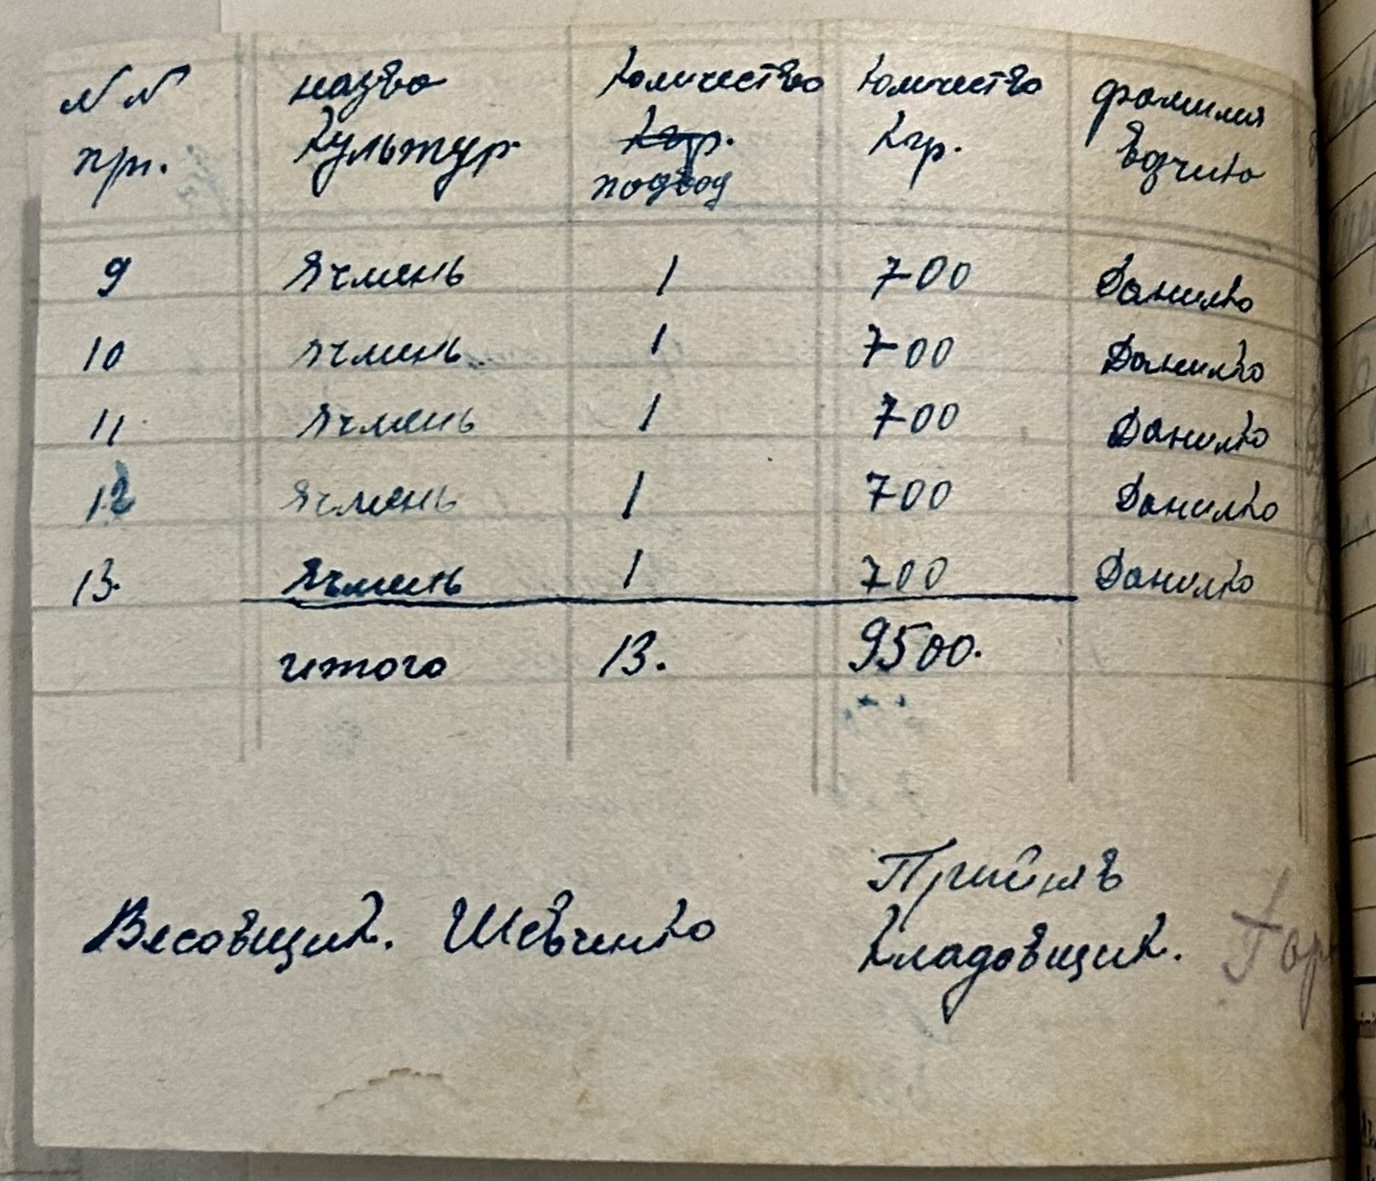 NN назва количество количество фамилия
пп. культур кгр. подвод кгр. водчика
9 Ячмень 1 700 Данилко
10 Ячмень 1 700 Данилко
11 Ячмень 1 700 Данилко
12 Ячмень 1 700 Данилко
13. Ячмень 1 700 Данилко
итого 13. 9500.
Прийняв
Весовщик. Шевченко Кладовщик.